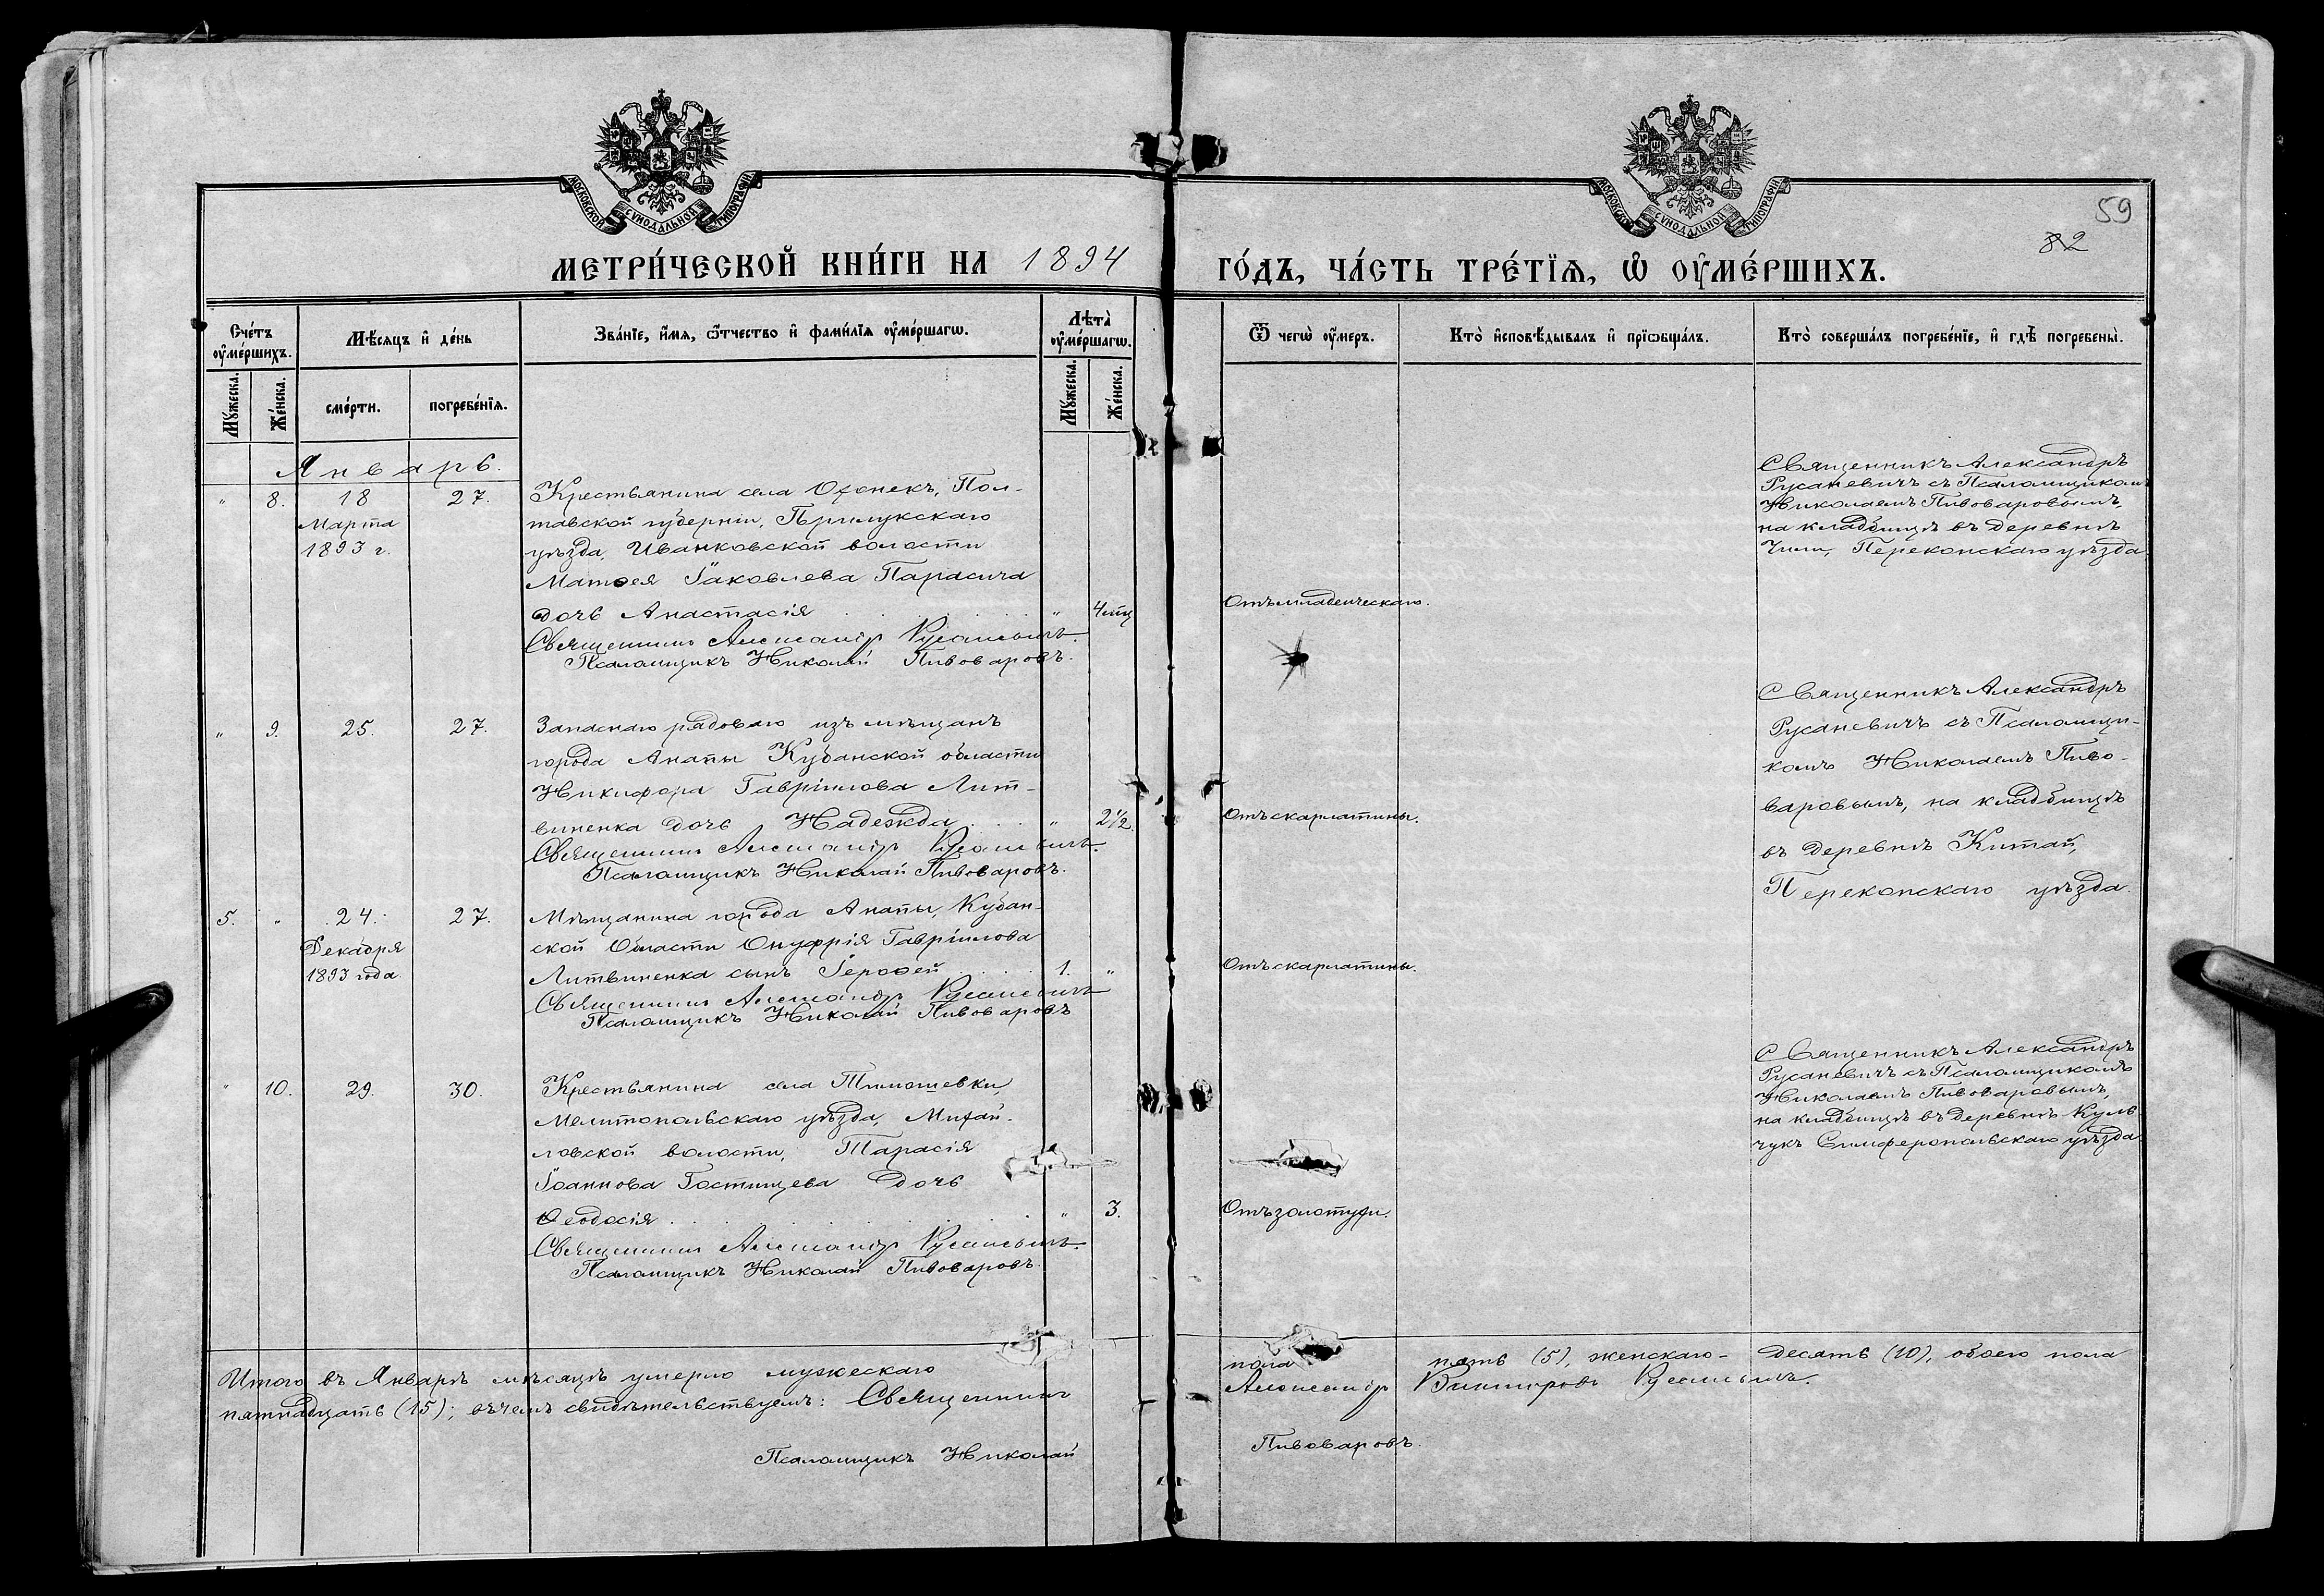 МОСКОВСКОЙ СѴНОДАЛЬНОЙ ТИПОГРАФІИ
МОСКОВСКОЙ СѴНОДАЛЬНОЙ ТИПОГРАФІИ
59
82
МЕТРИ́ЧЕСКОЙ КНИ́ГИ НА 1894 ГО́ДЪ, ЧА́СТЬ ТРЕ́ТЇѦ, Ѽ ОУ҆МЕ́РШИХЪ.
Сче́тъ оу҆ме́ршихъ.
Мꙋ́жеска.
Же́нска.
Мѣ́сяцъ и҆ де́нь
сме́рти.
погребе́нїѧ.
Зва́нїе, и҆́мѧ, ѻ҆́тчество и҆ фами́лїѧ оу҆ме́ршагѡ.
Лѣта̀ оу҆ме́ршагѡ.
Мꙋ́жеска.
Же́нска.
Ѿ чегѡ̀ оу҆́меръ.
Кто̀ и҆сповѣ́дывалъ и҆ прїѡбща́лъ.
Кто̀ соверша́лъ погребе́нїе, и҆ гдѣ̀ погребены̀.
Январь.
" 8. 18 Марта 1893 г. 27.
Крестьянина села Охонекъ, Пол-
тавской губерніи, Прилукскаго
уѣзда, Иванковской волости
Матѳея Іаковлева Парасича
дочь Анастасія " 4 мц
Священникъ Александръ Русаневичъ.
Псаломщикъ Николай Пивоваровъ.
Отъ младенческаго.
Священникъ Александръ
Русаневичъ съ Псаломщикомъ
Николаемъ Пивоваровымъ,
на кладбищѣ въ деревнѣ
Чиги, Перекопскаго уѣзда.
" 9. 25. 27.
Запаснаго рядоваго изъ мѣщанъ
города Анапы Кубанской области
Никифора Гавріилова Лит-
виненка дочь Надежда " 2½.
Священникъ Александръ Русаневичъ.
Псаломщикъ Николай Пивоваровъ.
Отъ скарлатины.
Священникъ Александръ
Русаневичъ съ Псаломщи-
комъ Николаемъ Пиво-
варовымъ, на кладбищѣ
въ деревнѣ Китай,
Перекопскаго уѣзда.
5. " 24. Декабря 1893 года. 27.
Мѣщанина города Анапы, Кубан-
ской Области Онуфрія Гавріилова
Литвиненка сынъ Іероѳей 1. "
Священникъ Александръ Русаневичъ
Псаломщикъ Николай Пивоваровъ
Отъ скарлатины.
" 10. 29. 30.
Крестьянина села Тимошевки,
Мелитопольскаго уѣзда, Михай-
ловской волости, Тарасія
Іоаннова Гостищева дочь
Ѳеодосія " 3.
Священникъ Александръ Русаневичъ.
Псаломщикъ Николай Пивоваровъ.
Отъ золотухи.
Священникъ Александръ
Русаневичъ съ Псаломщикомъ
Николаемъ Пивоваровымъ,
на кладбищѣ въ деревнѣ Куль-
чукъ Симферопольскаго уѣзда.
Итого въ Январѣ мѣсяцѣ умерло мужескаго пола пять (5), женскаго- десять (10), обоего пола
пятнадцать (15); въ чемъ свидѣтельствуемъ: Священникъ Александръ Викторовъ Русаневичъ.
Псаломщикъ Николай Пивоваровъ.